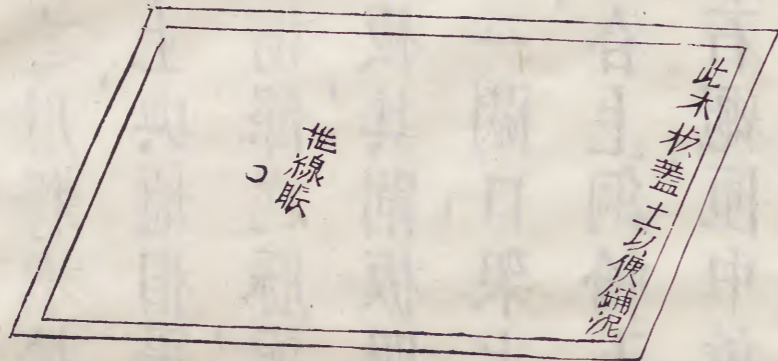 此木板蓋土以便鋪泥
拖線眼